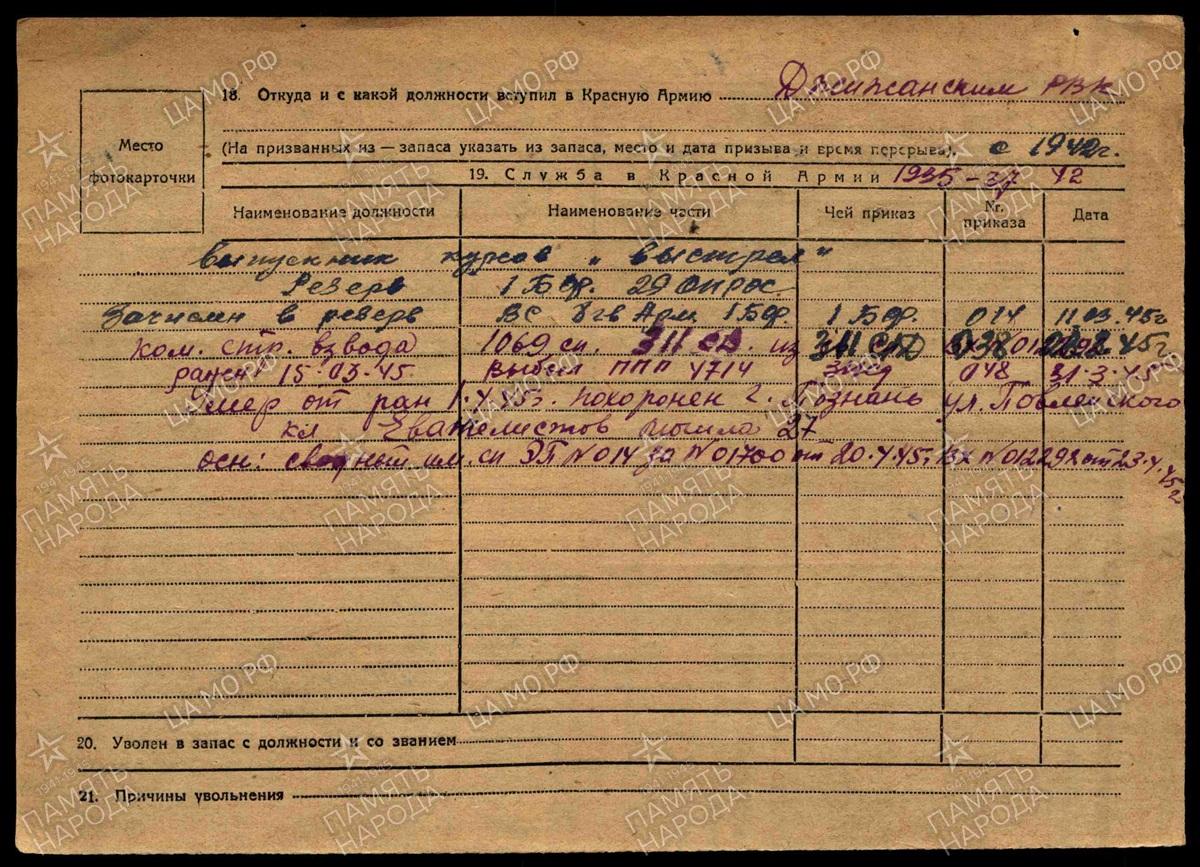 18. Откуда и с какой должности вступил в Красную Армию Джижанским РВК
Место фотокарточки
(На призванных из — запаса указать из запаса, место и дата призыва и время перерыва). с 1942г.
19. Служба в Красной Армии 1935-37 42
Наименование должности Наименование части Чей приказ Nr. приказа Дата
Выпускник курсов „Выстрел"
Резерв 1 Б Фр. 29 ОПРОС
Зачислен в резерв ВС Арм. 1 Б Фр. 1 Б Фр. 014 11 03.45г
ком. стр. взвода 1069 сп. 311 СД. 311 СД 038 45г
ранен 15.03.45 выбыл ППГ 4714 048 31.3.45
Умер от ран 1.4.45г. похоронен г. Познань ул.
кл Евангелистов могила 27
осн: им. сп ЭГ N014 за N01700 от 20.4.45г. Вх N012292 от 23.4.45г
20. Уволен в запас с должности и со званием
21. Причины увольнения
ЦАМО.РФ
ПАМЯТЬ НАРОДА
1941-1945